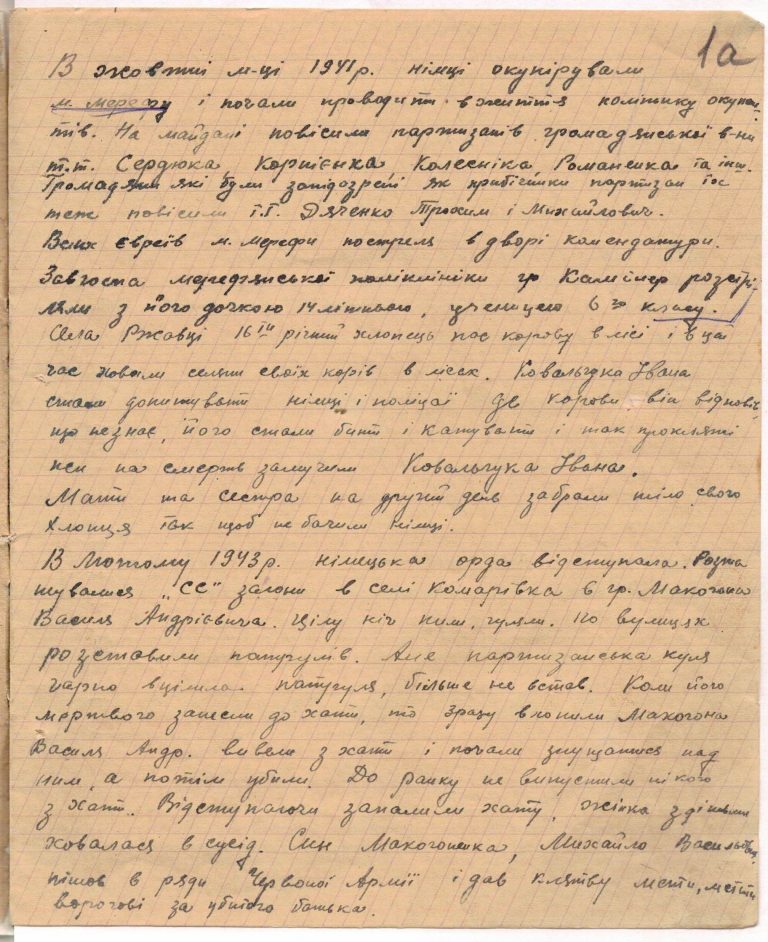 1а
В жовтні м-ці 1941р. німці окупірували
м. мерефу і почали проводити в життя політику окупан-
тів. На майдані повісили партизатів громадянської в-ни
т.т. Сердюка Корпієнка Колесніка Романенка та інш.
Громадяни які були запідозрені як прибічники партизан їх
теж повісили т.т. Дяченко Трохим і Михайлович.
Всих євреїв м. мерефи постреля в дворі комендатури.
Завгоспа мерефянської поліклініки гр Камінер розстрі-
ляли з його дочкою 14 літньою, ученицею 6го класу.
Села Ржавці 16ти річний хлопець пас корову в лісі і в ца
час ховали селяни своїх корів в лісах. Ковальчука Івана
стали допитувати німці і поліцаї де корови, він відповів,
що незнає, його стали бити і катувати і так прокляті
пси на смерть замучили Ковальчука Івана.
Мати та сестра на другий день забрали тіло свого
хлопця так щоб не бачили німці.
В Лютому 1943р. німецька орда відступала. Розта
шувалися „СС" загони в селі Комарівка в гр. Макогона
Василя Андрієвича. Цілу ніч пили, гуляли. по вулицях
розставили патрулів. Але партизанська куля
гарно вцілила патруля, більше не встав. Коли його
мертвого занесли до хати, то зразу вхопили Макогона
Василя Андр. вивели з хати і почали знущатися над
ним, а потім убили. До ранку не випустили нікого
з хати. Відступаючи запалили хату, жінка з дітьми
ховалася в сусід. Син Макогоненка, Михайло Васильович
пішов в ряди Червоної Армії і дав клятву мсти, мстити
ворогові за убитого батька.